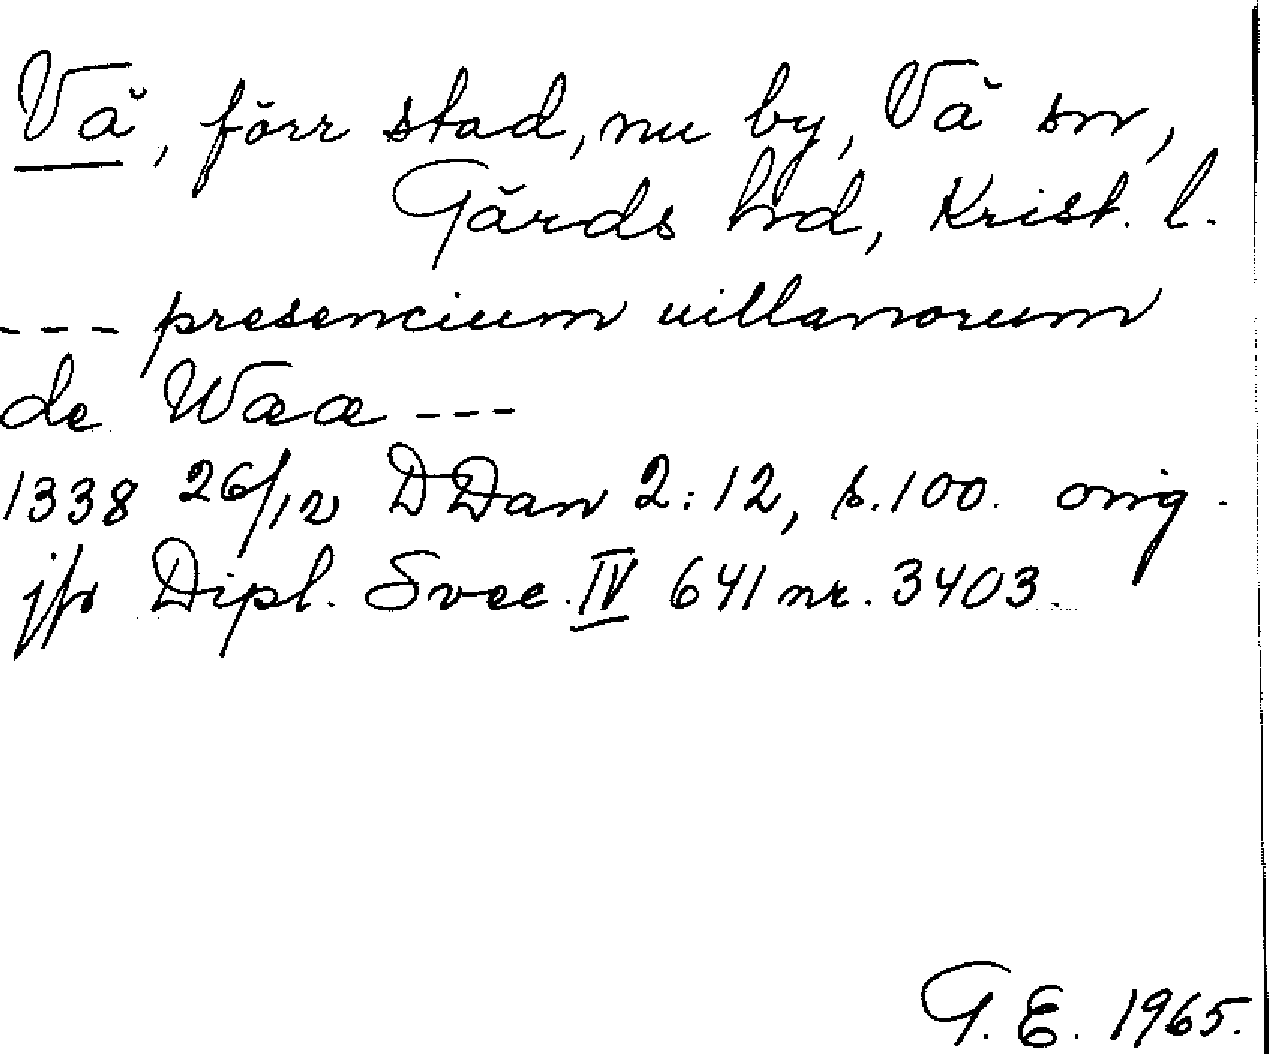 Vä, förr stad, nu by, Vä sn,
Gärds hd, Krist. l.
--- presencium uillanorum
de Wææ ---
1338 26/12 DDan 2:12, s.100. orig.
jfr Dipl. Svec. IV 641 nr. 3403.
G. E. 1965.